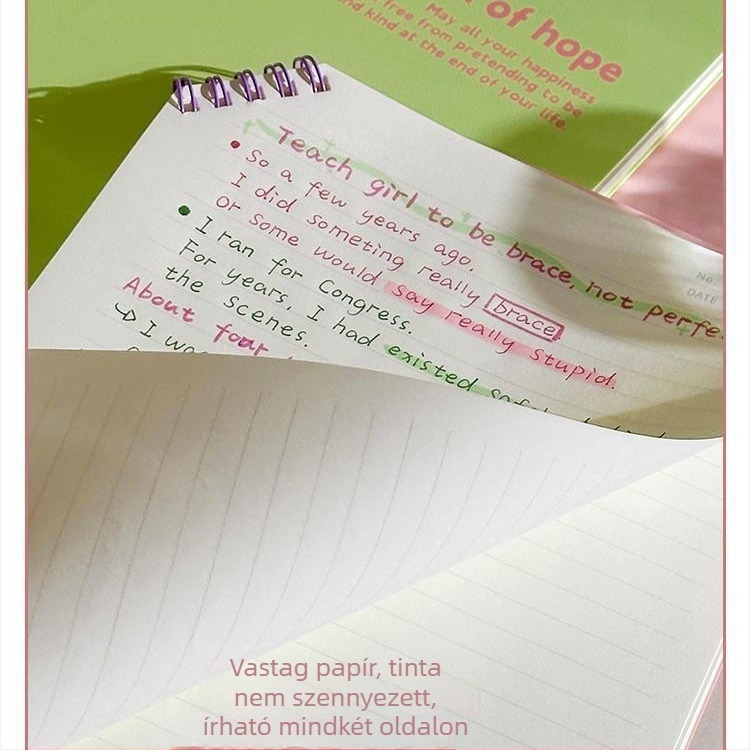 of hope
May all your happiness
free from pretending to be
and kind at the end of your life.
No.
DATE
Teach girl to be brace, not perfe
So a few years ago,
I did someting really brace
or some would say really stupid.
I ran for Congress.
For years, I had existed
the scenes.
About four
I was
Vastag papír, tinta
nem szennyezett,
írható mindkét oldalon